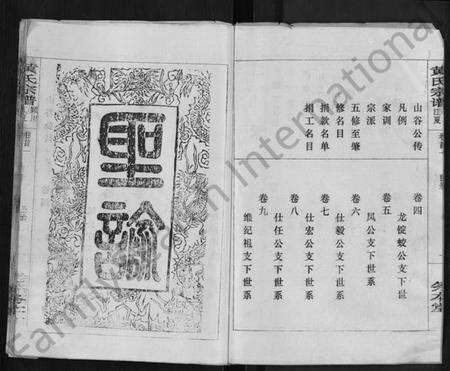 黄氏宗谱
山谷公传
凡例
家训
宗派
五修至肇
修名目
捐款名单
捐工名目
卷四
龙锭蛟公支下世
卷五
凤公支下世系
卷六
仕毅公支下世系
卷七
仕宏公支下世系
卷八
仕任公支下世系
卷九
维纪祖支下世系
圣谕
黄氏宗谱
卷首
FamilySearch International